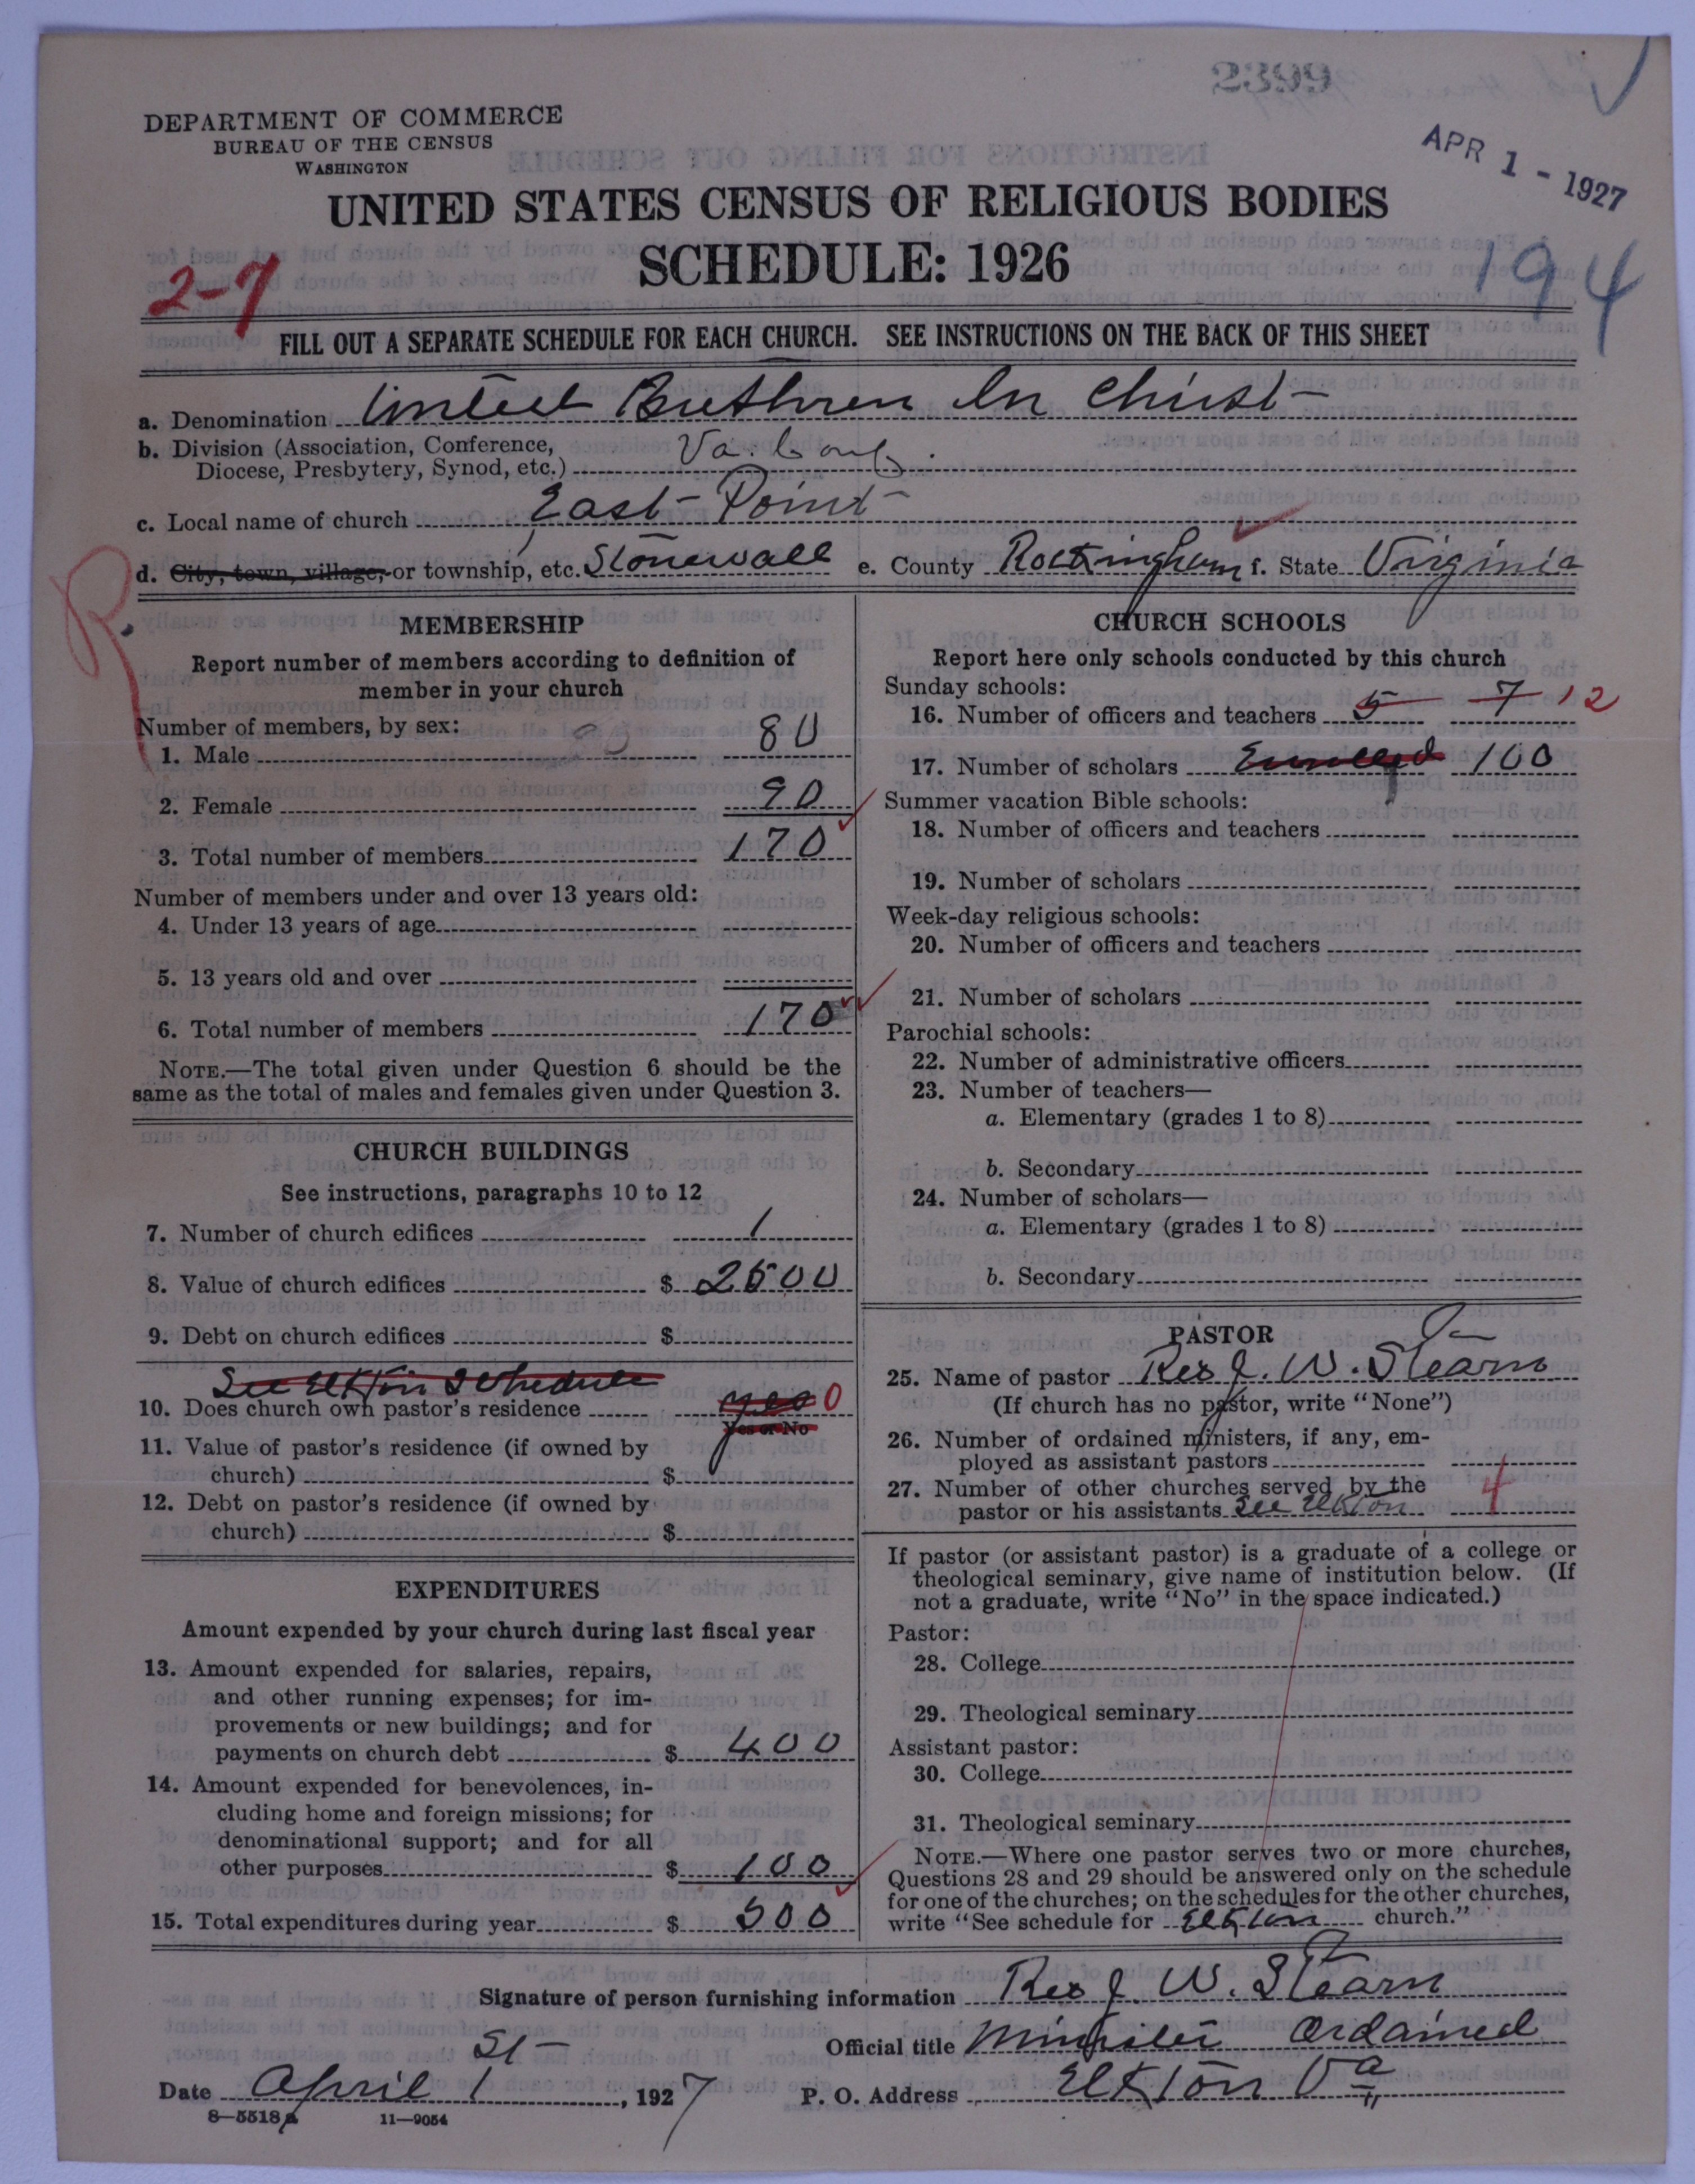 2399
DEPARTMENT OF COMMERCE
BUREAU OF THE CENSUS
WASHINGTON
APR 1 - 1927
UNITED STATES CENSUS OF RELIGIOUS BODIES
SCHEDULE: 1926
2-7
194
FILL OUT A SEPARATE SCHEDULE FOR EACH CHURCH. SEE INSTRUCTIONS ON THE BACK OF THIS SHEET
a. Denomination United Brethren In Christ
b. Division (Association, Conference, Va. Conf.
Diocese, Presbytery, Synod, etc.)
c. Local name of church East Point
d. City, town, village, or township, etc. Stonewall e. County Rockingham f. State Virginia
R
MEMBERSHIP
Report number of members according to definition of
member in your church
Number of members, by sex:
1. Male 80
2. Female 90
3. Total number of members 170
Number of members under and over 13 years old:
4. Under 13 years of age
5. 13 years old and over
6. Total number of members 170
NOTE.—The total given under Question 6 should be the
same as the total of males and females given under Question 3.
CHURCH BUILDINGS
See instructions, paragraphs 10 to 12
7. Number of church edifices 1
8. Value of church edifices $ 2500
9. Debt on church edifices $
See Elkton Schedule
10. Does church own pastor's residence yes 0
Yes or No
11. Value of pastor's residence (if owned by
church) $
12. Debt on pastor's residence (if owned by
church) $
EXPENDITURES
Amount expended by your church during last fiscal year
13. Amount expended for salaries, repairs,
and other running expenses; for im-
provements or new buildings; and for
payments on church debt $ 400
14. Amount expended for benevolences, in-
cluding home and foreign missions; for
denominational support; and for all
other purposes $ 100
15. Total expenditures during year $ 500
CHURCH SCHOOLS
Report here only schools conducted by this church
Sunday schools:
16. Number of officers and teachers 5 7 12
17. Number of scholars Enrolled 100
Summer vacation Bible schools:
18. Number of officers and teachers
19. Number of scholars
Week-day religious schools:
20. Number of officers and teachers
21. Number of scholars
Parochial schools:
22. Number of administrative officers
23. Number of teachers—
a. Elementary (grades 1 to 8)
b. Secondary
24. Number of scholars—
a. Elementary (grades 1 to 8)
b. Secondary
PASTOR
25. Name of pastor Rev J. W. Stearn
(If church has no pastor, write "None")
26. Number of ordained ministers, if any, em-
ployed as assistant pastors
27. Number of other churches served by the
pastor or his assistants See Elkton 4
If pastor (or assistant pastor) is a graduate of a college or
theological seminary, give name of institution below. (If
not a graduate, write "No" in the space indicated.)
Pastor:
28. College
29. Theological seminary
Assistant pastor:
30. College
31. Theological seminary
NOTE.—Where one pastor serves two or more churches,
Questions 28 and 29 should be answered only on the schedule
for one of the churches; on the schedules for the other churches,
write "See schedule for Elkton church."
Signature of person furnishing information Rev J. W. Stearn
Official title Minister Ordained
Date April 1 St , 1927 P. O. Address Elkton Va
8—5518a 11—9054